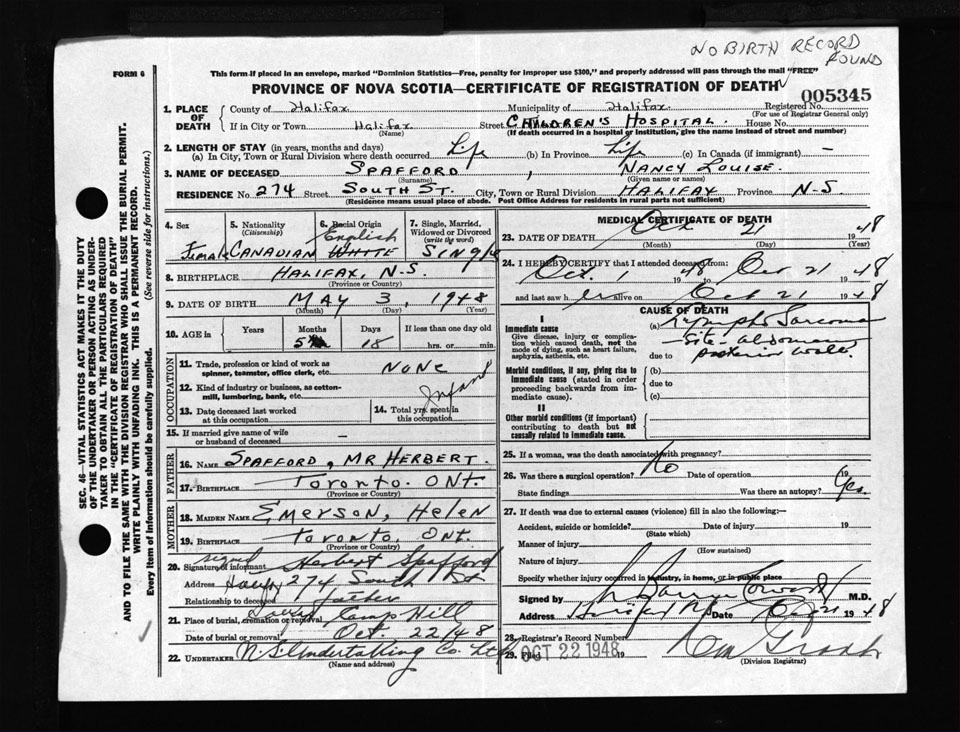 NO BIRTH RECORD
FOUND
FORM 6
This form if placed in an envelope, marked "Dominion Statistics—Free, penalty for improper use $300," and properly addressed will pass through the mail "FREE"
PROVINCE OF NOVA SCOTIA—CERTIFICATE OF REGISTRATION OF DEATH
005345
1. PLACE OF DEATH
County of Halifax Municipality of Halifax Registered No.
(For use of Registrar General only)
If in City or Town Halifax Street CHILDREN'S HOSPITAL. House No.
(Name) (If death occurred in a hospital or institution, give the name instead of street and number)
2. LENGTH OF STAY (in years, months and days)
(a) In City, Town or Rural Division where death occurred Life (b) In Province Life (c) In Canada (if immigrant) —
3. NAME OF DECEASED SPAFFORD , NANCY LOUISE.
(Surname) (Given name or names)
RESIDENCE No 274 Street SOUTH ST. City, Town or Rural Division HALIFAX Province N-S.
(Residence means usual place of abode. Post Office Address for residents in rural parts not sufficient)
SEC. 46—VITAL STATISTICS ACT MAKES IT THE DUTY
OF THE UNDERTAKER OR PERSON ACTING AS UNDER-
TAKER TO OBTAIN ALL THE PARTICULARS REQUIRED
IN THE "CERTIFICATE OF REGISTRATION OF DEATH"
AND TO FILE THE SAME WITH THE DIVISION REGISTRAR WHO SHALL ISSUE THE BURIAL PERMIT.
WRITE PLAINLY WITH UNFADING INK. THIS IS A PERMANENT RECORD.
Every item of information should be carefully supplied. (See reverse side for instructions.)
4. Sex Female
5. Nationality (Citizenship) CANADIAN
6. Racial Origin English WHITE
7. Single, Married, Widowed or Divorced (write the word) SINGLE
8. BIRTHPLACE HALIFAX, N.S.
(Province or Country)
9. DATE OF BIRTH MAY 3, 1948
(Month) (Day) (Year)
10. AGE in Years Months Days If less than one day old
5 18 hrs. or min.
OCCUPATION
11. Trade, profession or kind of work as spinner, teamster, office clerk, etc. NONE
12. Kind of industry or business, as cotton-mill, lumbering, bank, etc. Infant
13. Date deceased last worked at this occupation
14. Total yrs. spent in this occupation
15. If married give name of wife or husband of deceased —
FATHER
16. NAME SPAFFORD, MR HERBERT.
17. BIRTHPLACE Toronto. ONT.
(Province or Country)
MOTHER
18. MAIDEN NAME EMERSON, Helen
19. BIRTHPLACE Toronto, Ont.
(Province or Country)
20. Signature of informant signed Herbert Spafford
Address 274 South St
Relationship to deceased father
21. Place of burial, cremation or removal Camp Hill
Date of burial or removal Oct. 22/48
22. UNDERTAKER N.S. Undertaking Co. Ltd
(Name and address)
MEDICAL CERTIFICATE OF DEATH
23. DATE OF DEATH Oct 21 1948
(Month) (Day) (Year)
24. I HEREBY CERTIFY that I attended deceased from:
Oct. 1 1948 to Oct 21 1948
and last saw h er alive on Oct 21 1948
CAUSE OF DEATH
I
Immediate cause
Give disease, injury or complication which caused death, not the mode of dying, such as heart failure, asphyxia, asthenia, etc.
(a) Lympho Sarcoma
Site - abdomen
due to posterior wall.
Morbid conditions, if any, giving rise to immediate cause (stated in order proceeding backwards from immediate cause).
(b)
due to
(c)
II
Other morbid conditions (if important) contributing to death but not causally related to immediate cause.
25. If a woman, was the death associated with pregnancy?
26. Was there a surgical operation? No Date of operation 19
State findings Was there an autopsy? Yes.
27. If death was due to external causes (violence) fill in also the following:—
Accident, suicide or homicide? Date of injury 19
(State which)
Manner of injury
(How sustained)
Nature of injury
Specify whether injury occurred in industry, in home, or in public place
Signed by M.D.
Address Halifax NS Date Oct 21 1948
28. Registrar's Record Number
29. Filed OCT 22 1948 19
(Division Registrar)